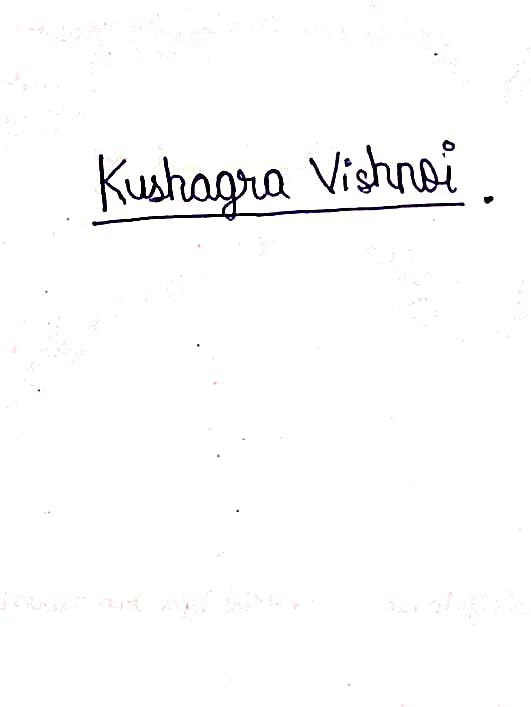 Kushagra Vishnoi .